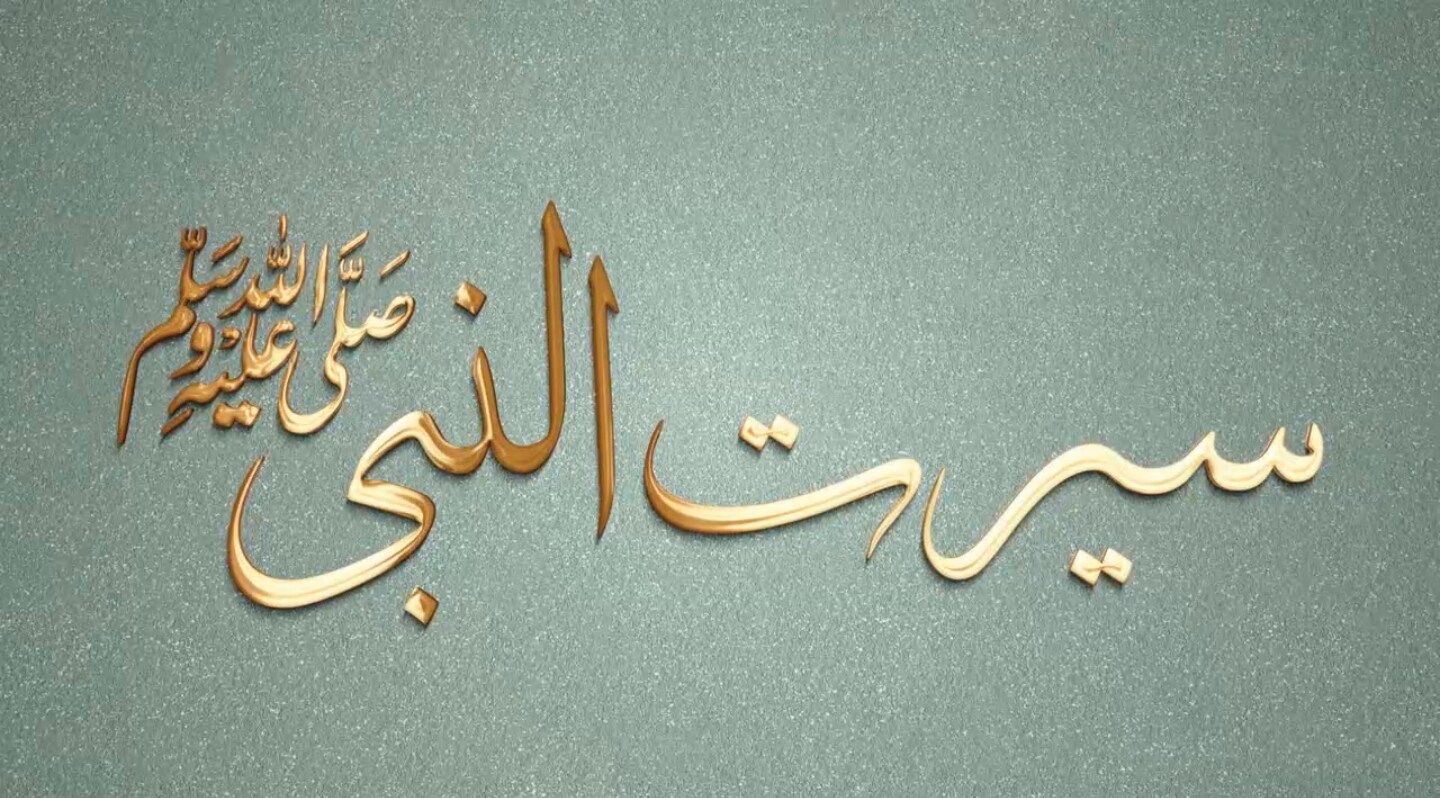 سیرت النبی صَلَّی اللہ عَلَیْہِ وَسَلَّم